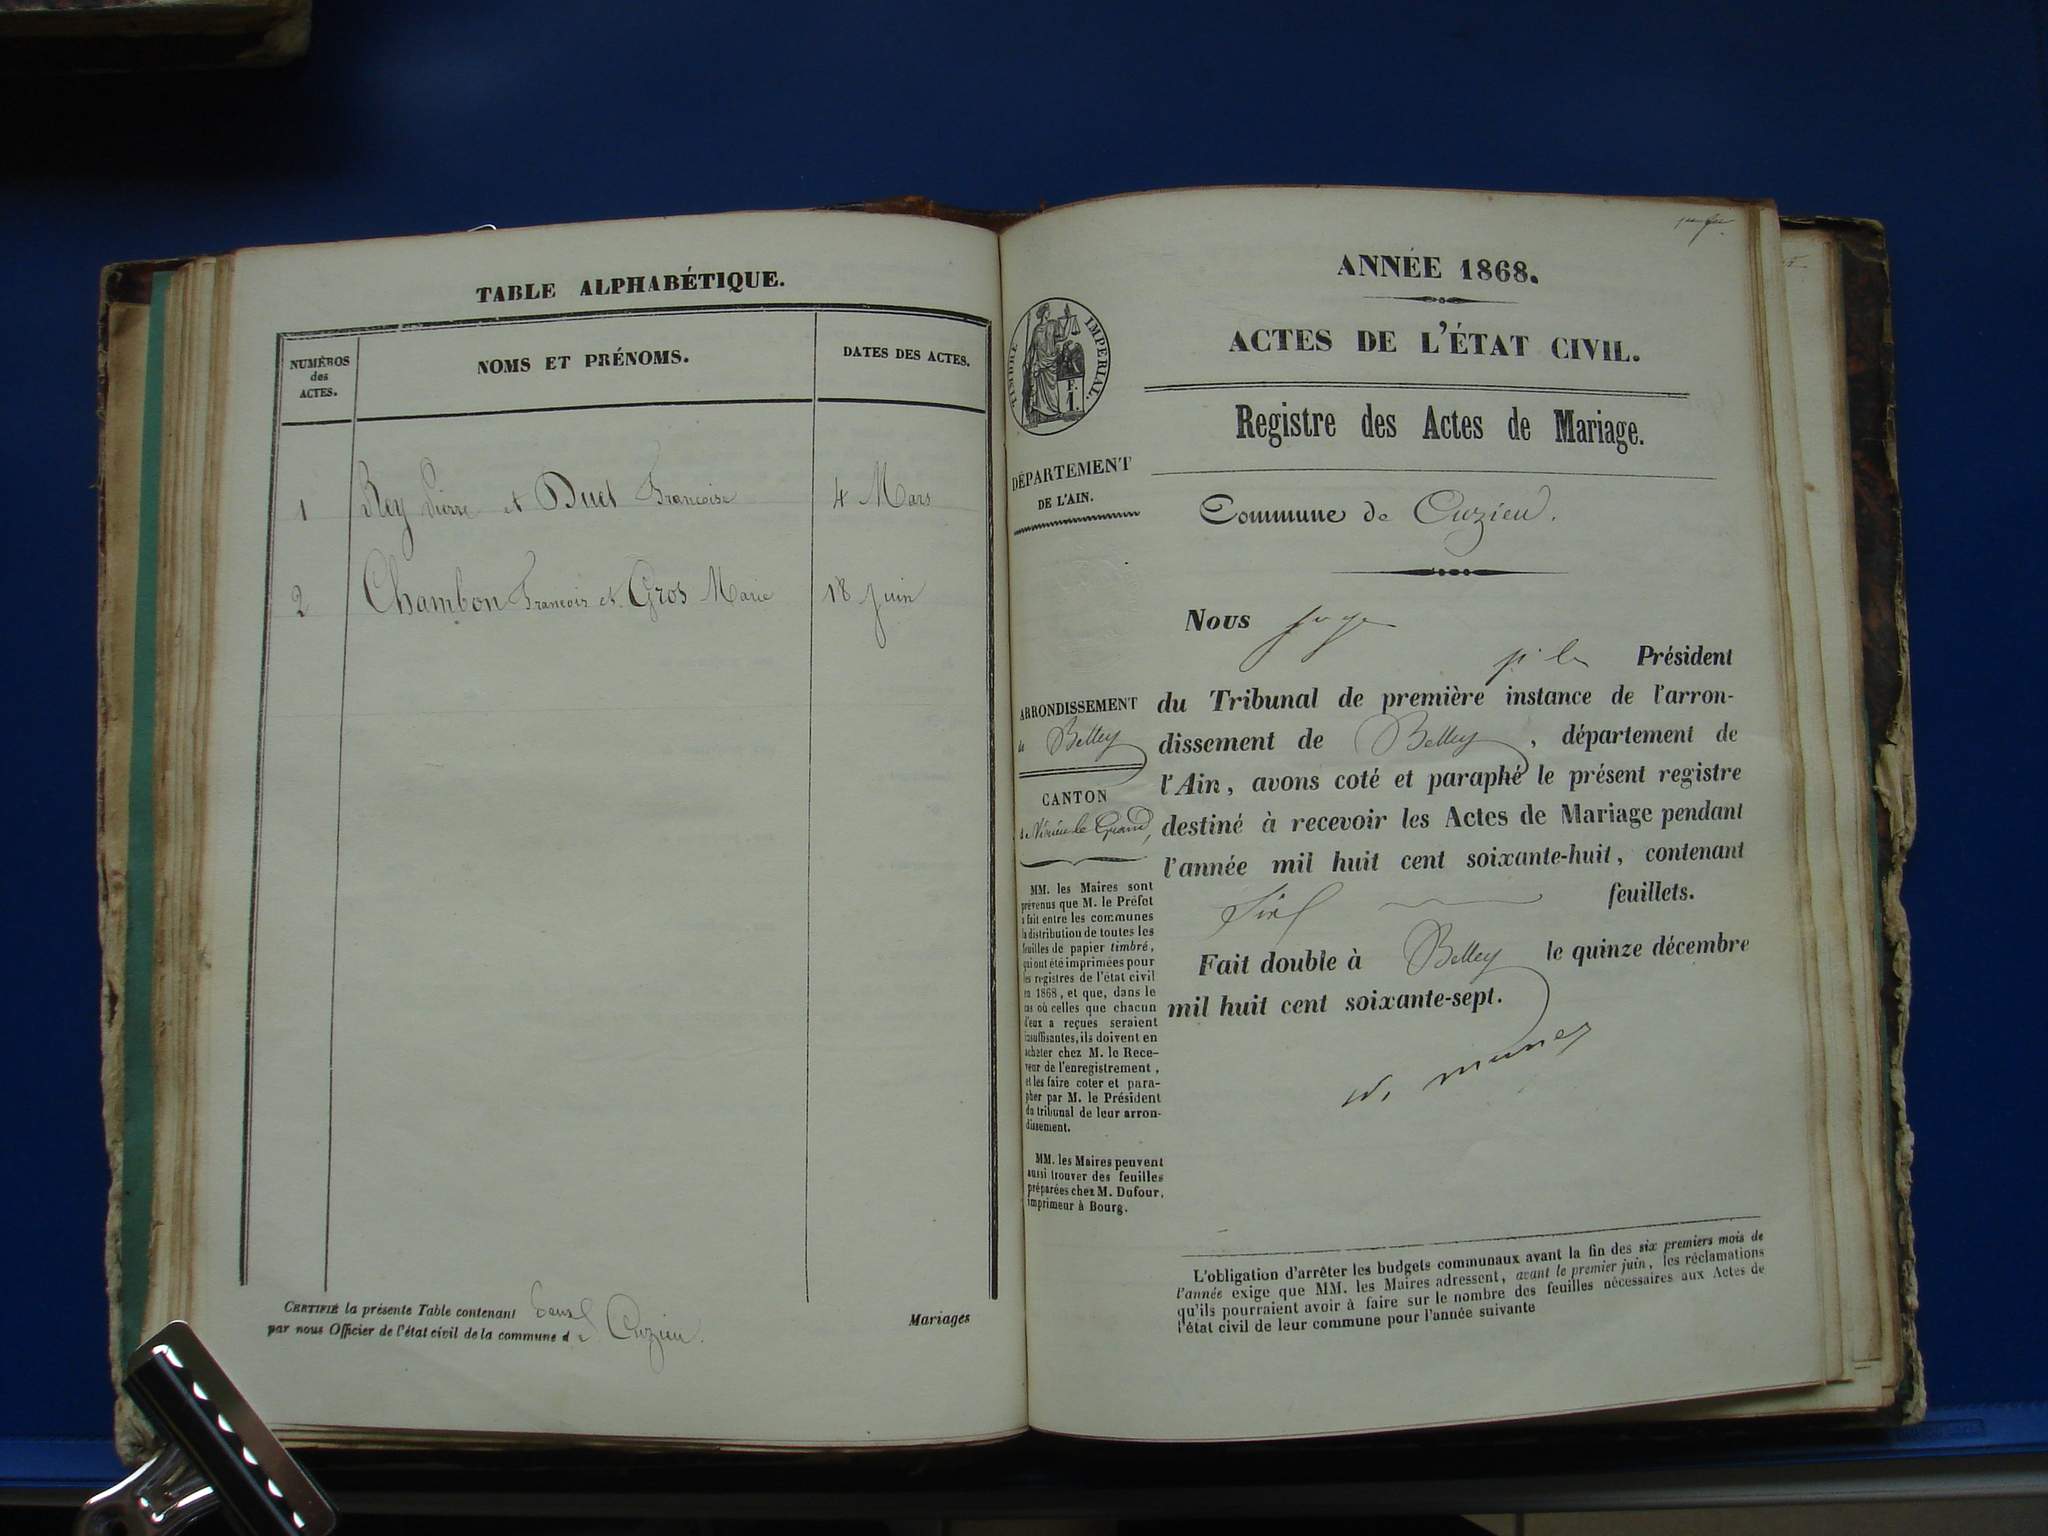 TABLE ALPHABÉTIQUE.
NUMÉROS
des
ACTES.
NOMS ET PRÉNOMS.
DATES DES ACTES.
1 Rey Pierre et Duet Françoise 4 Mars
2 Chambon François et Gros Marie 18 Juin
CERTIFIÉ la présente Table contenant deux Mariages
par nous Officier de l'état civil de la commune de Cuzieu.
ANNÉE 1868.
ACTES DE L'ÉTAT CIVIL.
TIMBRE IMPÉRIAL.
F.
1.
Registre des Actes de Mariage.
DÉPARTEMENT
DE L'AIN.
Commune de Cuzieu.
Nous juge
Président
du Tribunal de première instance de l'arron-
dissement de Belley, département de
l'Ain, avons coté et paraphé le présent registre
destiné à recevoir les Actes de Mariage pendant
l'année mil huit cent soixante-huit, contenant
feuillets.
Fait double à Belley le quinze décembre
mil huit cent soixante-sept.
ARRONDISSEMENT
de Belley
CANTON
de Virieu le Grand,
MM. les Maires sont
prévenus que M. le Préfet
a fait entre les communes
la distribution de toutes les
feuilles de papier timbré,
qui ont été imprimées pour
les registres de l'état civil
en 1868, et que, dans le
cas où celles que chacun
d'eux a reçues seraient
insuffisantes, ils doivent en
acheter chez M. le Rece-
veur de l'enregistrement,
et les faire coter et para-
pher par M. le Président
du tribunal de leur arron-
dissement.
MM. les Maires peuvent
aussi trouver des feuilles
préparées chez M. Dufour,
imprimeur à Bourg.
L'obligation d'arrêter les budgets communaux avant la fin des six premiers mois de
l'année exige que MM. les Maires adressent, avant le premier juin, les réclamations
qu'ils pourraient avoir à faire sur le nombre des feuilles nécessaires aux Actes de
l'état civil de leur commune pour l'année suivante